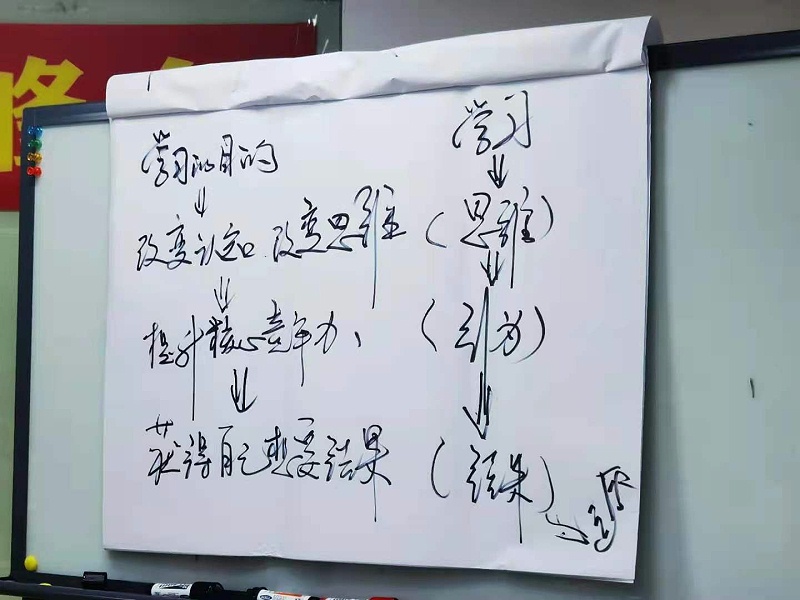 学习的目的
改变认知 改变思维
提升核心竞争力、
获得自己想要结果
学习
(思维)
(行为)
(结果)